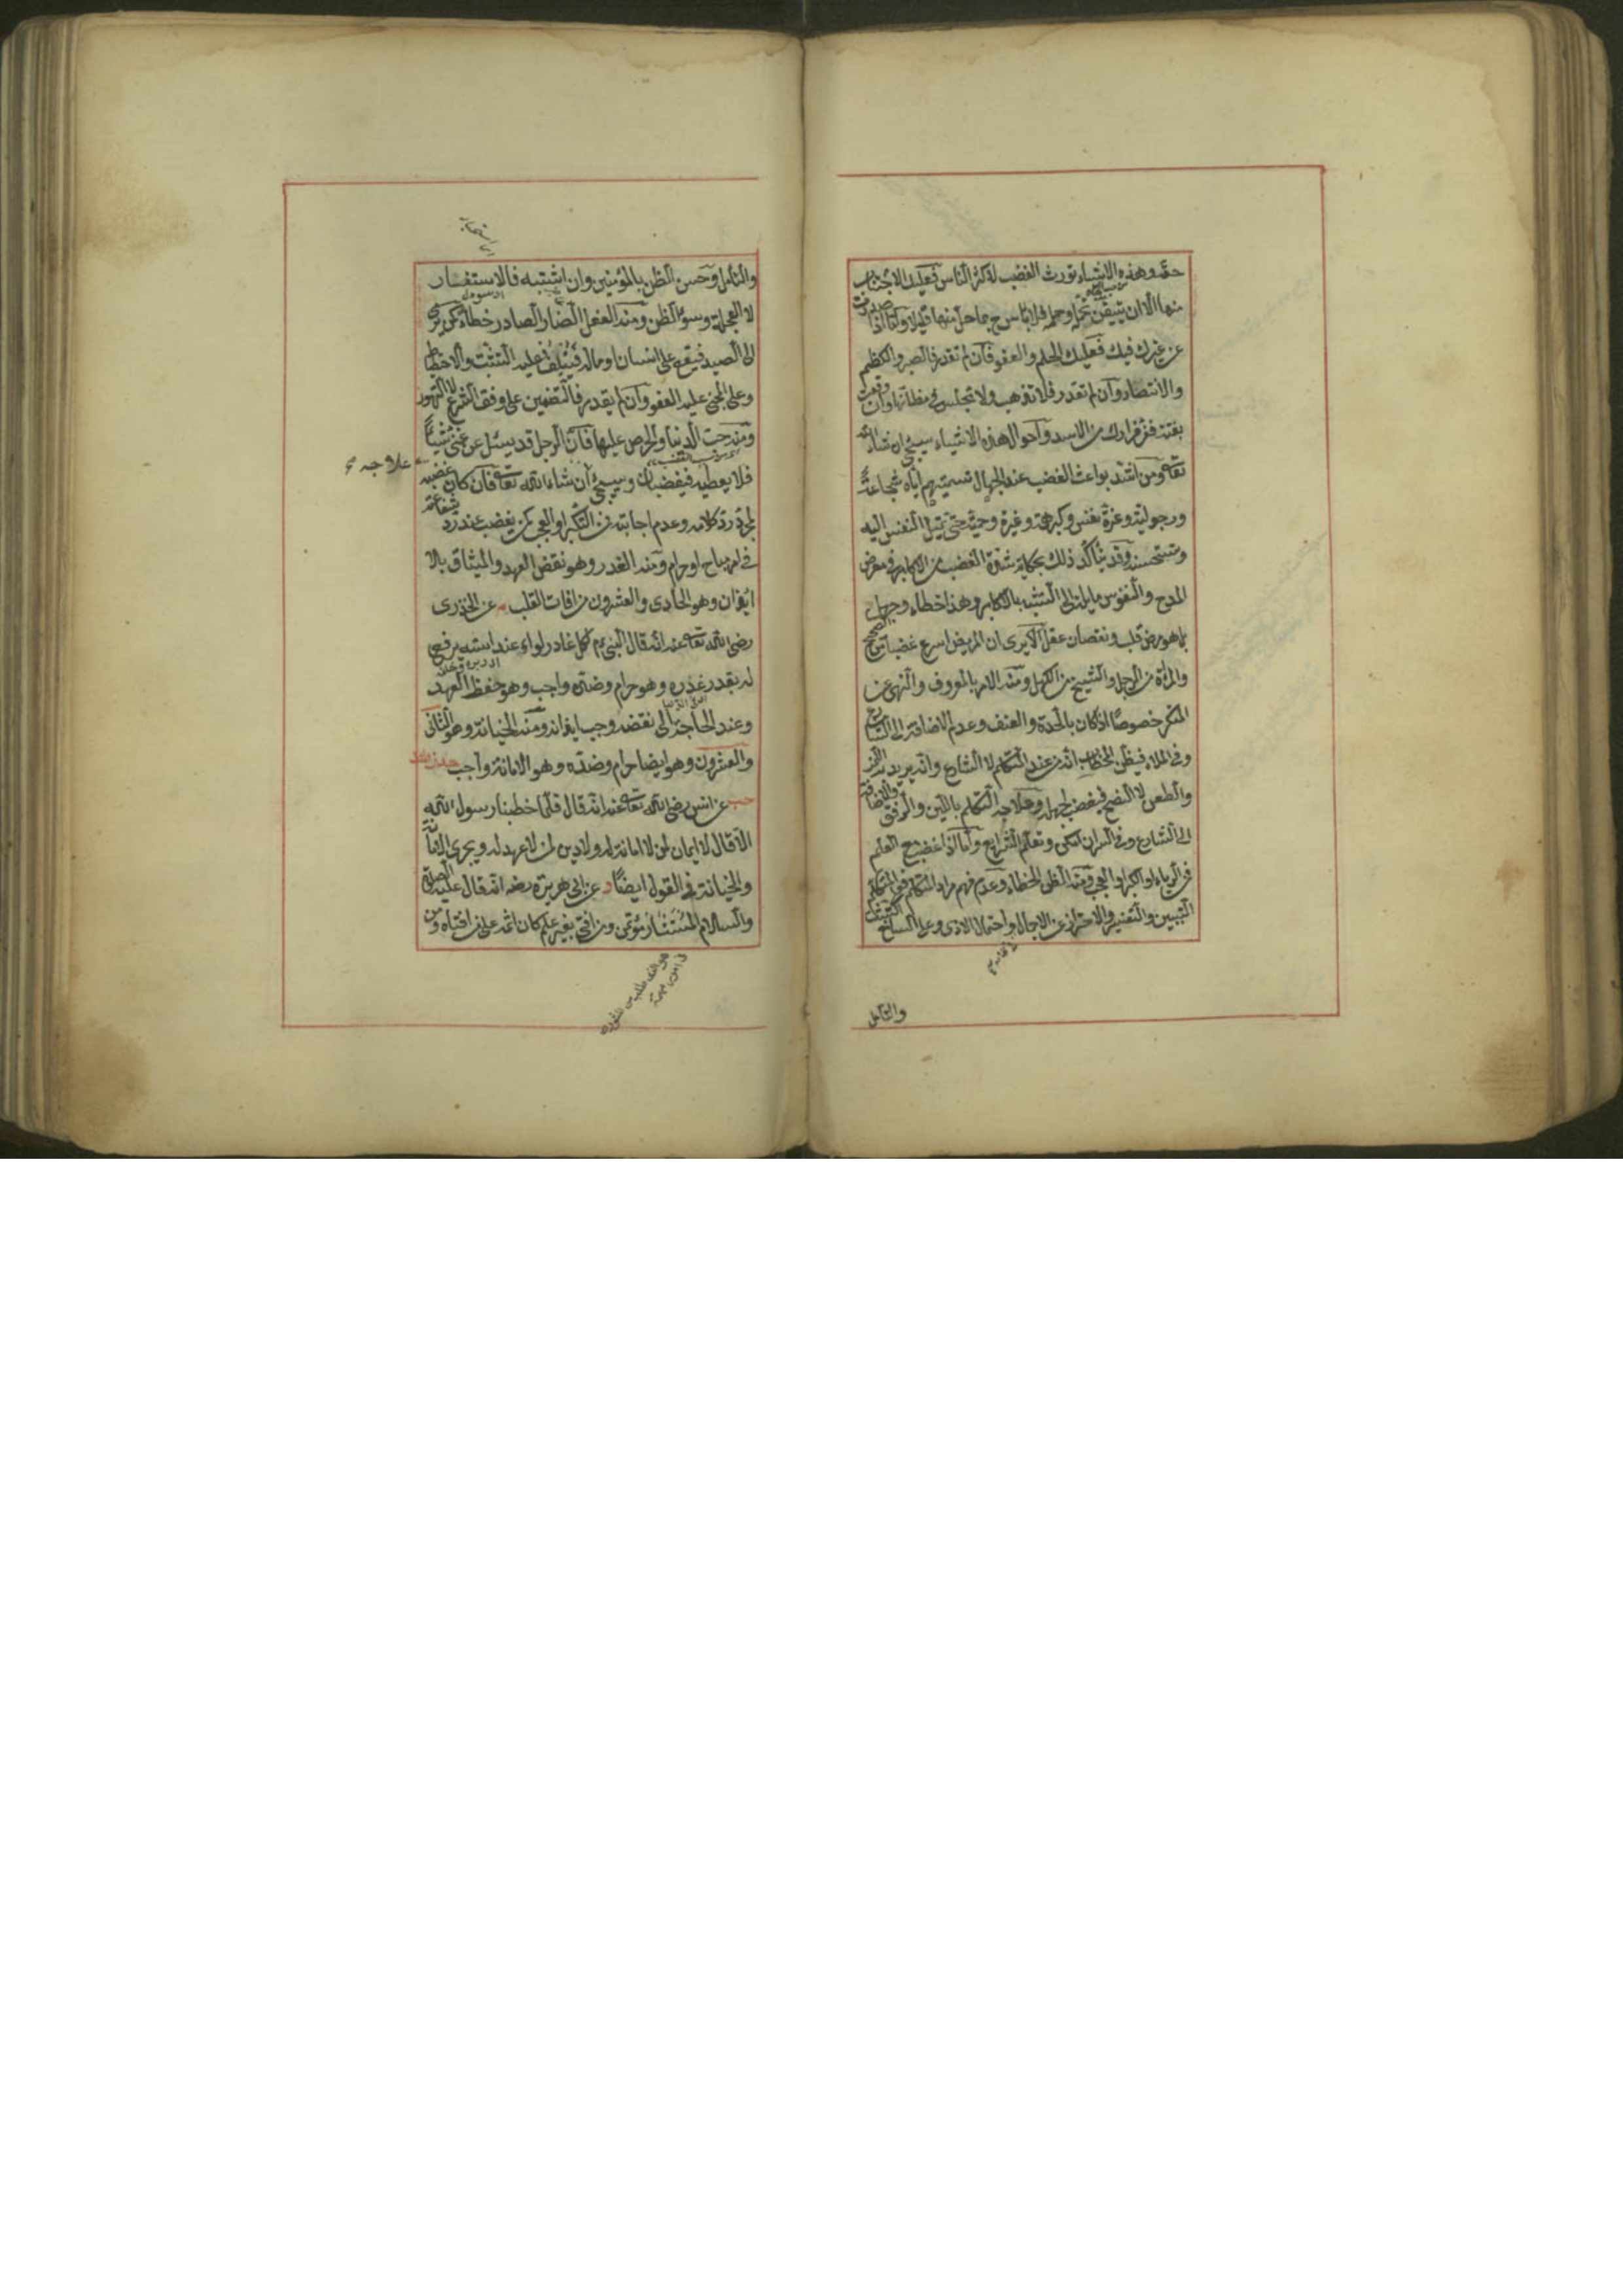 حقه وهذه الاشياء تورث الغضب لاكثر الناس فعليك الاجتناب
منها الا ان تتيقن تحمل وحمله فلا بأس ح بما حل منها قليلا وكذا اذا صدرت
عن غيرك فيك فعليك الحلم والعفو فان لم تقدر فالصبر والكظم
والانتصار وان لم تقدر فلا تذهب ولا تجلس في مظانها وان وقعت
بغتة ففر فرارك من الاسد واحوال هذه الاشياء سيجئ ان شاء الله
تعالى ومن اشد بواعث الغضب عند الجهال تسميتهم اياه شجاعة
ورجولية وعزة نفس وكبر همة وغيرة وحمية حتى تميل النفس اليه
وتستحسنه وقد يتأكد ذلك بحكاية شدة الغضب من الاكابر في معرض
المدح والنفوس مايلة الى التشبه بالاكابر وهذا خطاء وجهل
بل هو مرض قلب ونقصان عقل الا يرى ان المريض اسرع غضبا من الصحيح
والمرأة من الرجل والشيخ من الكهل ومنه الامر بالمعروف والنهى عن
المنكر خصوصا اذا كان بالحدة والعنف وعدم الاضافة الى الشارع
وفى الملاء فيظن المخاطب انه من عند المتكلم لا الشارع وانه يريد به
والطعن لا النصح فيغضب لجهله وعلاجه التكلم باللين والرفق والاضافة
الى الشارع وفى السر ان امكن وتعلم الشرايع واما اذا غضب مع العلم
فمن الرياء او الكبر او العجب ومنه الظن الخطاء وعدم فهم مراد المتكلم فعلى المتكلم
التبيين والتفسير والاحتراز عن الاجمال واحتمال الاذى وعلى السامع التثبت
والتأمل
والتأمل وحسن الظن بالمؤمنين وان اشتبه فالاستفسار
لا العجلة وسوء الظن ومنه الفعل الضار الصادر خطاء كمن يرمى
الى الصيد فيقع على انسان او ماله فيتلف فعليه التثبت والاحتياط
وعلى المجنى عليه العفو وان لم يقدر فالتضمين على وفق الشرع لا التهور
ومنه حب الدنيا والحرص عليها فان الرجل قد يسئل عن غنى شيئا
فلا يعطيه فيغضبان وسيجئ ان شاء الله تعالى فان كان غضبه
علاجه
لمجرد رد كلامه وعدم اجابته فمن التكبر او العجب كمن يغضب عند رد شفاعته
فى امر مباح او حرام ومنه الغدر وهو نقض العهد والميثاق بلا
ايذان وهو الحادى والعشرون من افات القلب م عن الخدرى
رضى الله تعالى عنه انه قال النبى عم لكل غادر لواء عند استه يرفع
له بقدر غدره وهو حرام وضده واجب وهو حفظ العهد
وعند الحاجة الى نقضه وجب ايذانه ومنه الخيانة وهو الثانى
والعشرون وهو ايضا حرام وضده وهو الامانة واجب
حب عن انس رضى الله تعالى عنه انه قال قلما خطبنا رسول الله
الا قال لا ايمان لمن لا امانة له ولا دين لمن لا عهد له ويجرى الامانة
والخيانة فى القول ايضا د عن ابى هريرة رضه انه قال عليه الصلوة
والسلام المستشار مؤتمن ومن افتى بغير علم كان اثمه على من افتاه ومن
هو الذى طلب من المشورة
فى امور مهمة